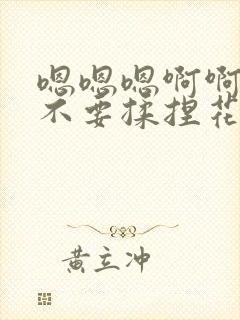 嗯嗯嗯啊啊
不要揉捏花
黄立冲